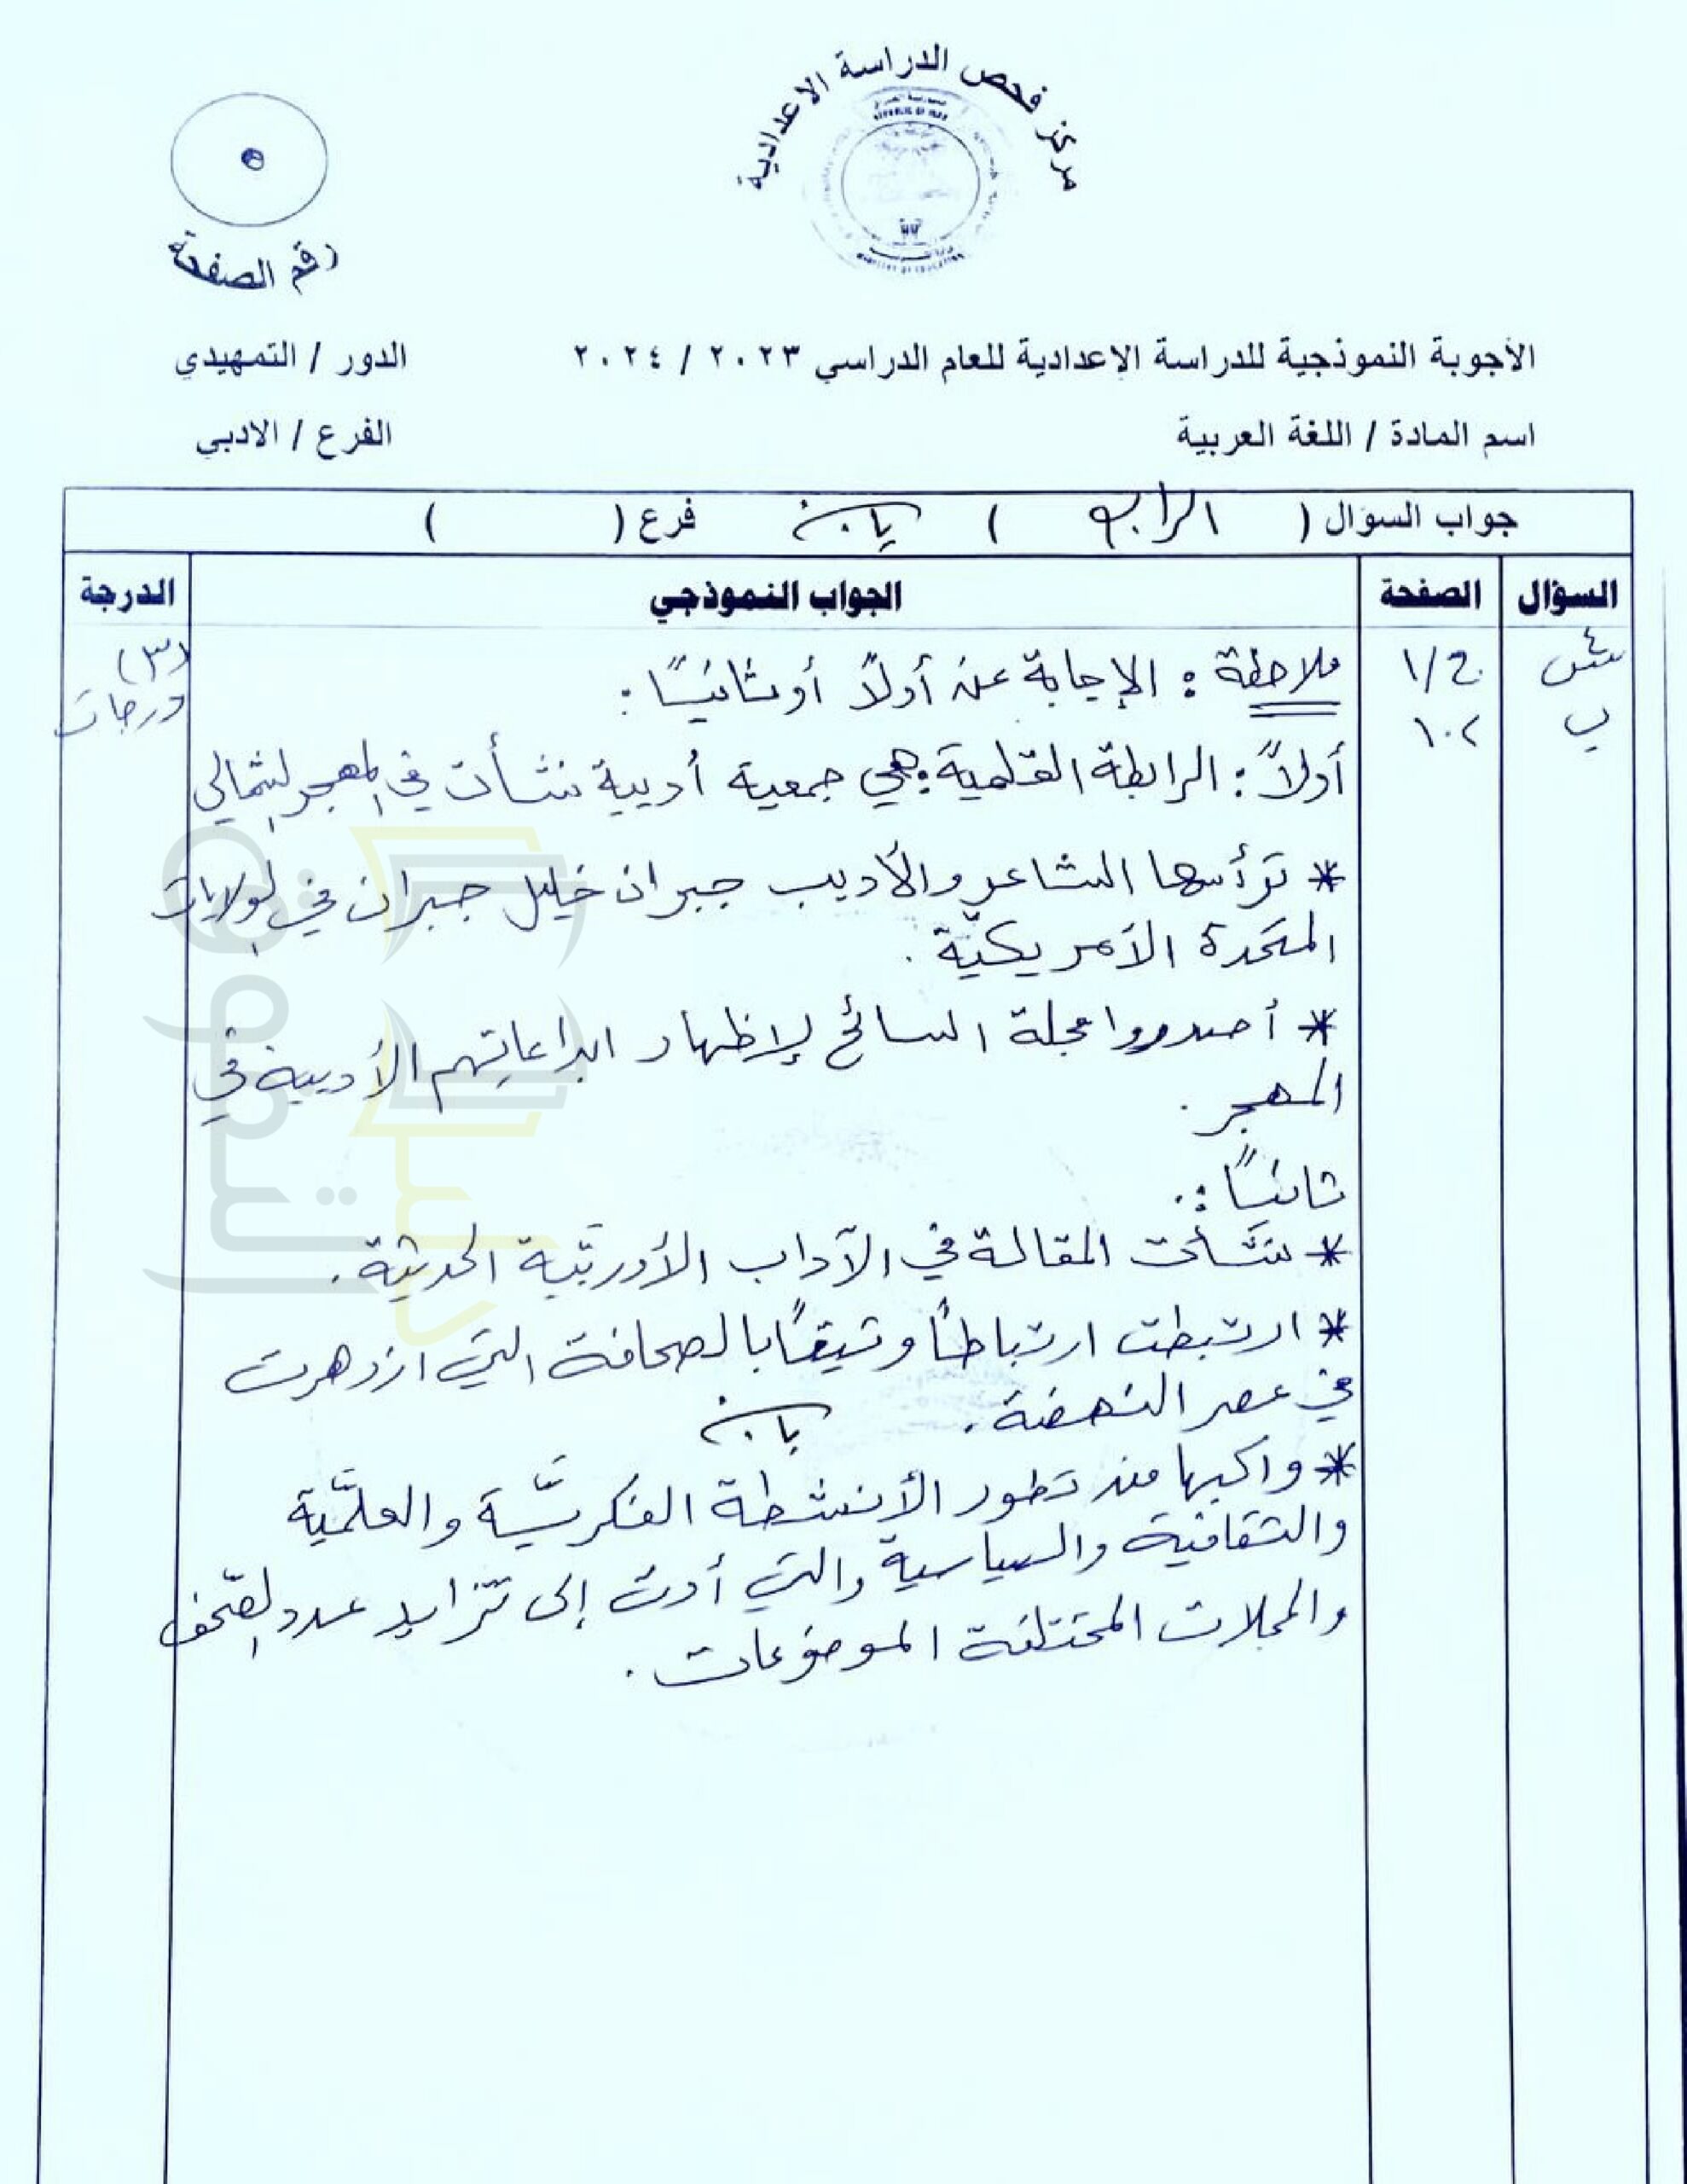 مركز فحص الدراسة الاعدادية
REPUBLIC OF IRAQ
MINISTRY OF EDUCATION
٥
رقم الصفحة
الأجوبة النموذجية للدراسة الإعدادية للعام الدراسي ٢٠٢٣ / ٢٠٢٤ الدور / التمهيدي
اسم المادة / اللغة العربية الفرع / الادبي
جواب السؤال ( الرابع ) فرع ( )
السؤال الصفحة الجواب النموذجي الدرجة
س٤ ج/١ ملاحظة : الإجابة عن أولاً أو ثانيًا : (٣)
ب ١٠٢ درجات
أولاً : الرابطة القلمية : هي جمعية أدبية نشأت في المهجر الشمالي
* ترأسها الشاعر والأديب جبران خليل جبران في الولايات
المتحدة الأمريكيّة .
* أصدروا مجلة السائح لإظهار ابداعاتهم الأدبية في
المهجر .
ثانيًا :
* نشأت المقالة في الآداب الأوربّية الحديثة .
* ارتبطت ارتباطاً وثيقًا بالصحافة التي ازدهرت
في عصر النهضة .
* واكبها من تطور الأنشطة الفكريّة والعلميّة
والثقافية والسياسية والتي أدت إلى تزايد عدد الصّحف
والمجلات المختلفة الموضوعات .
دار التفوق